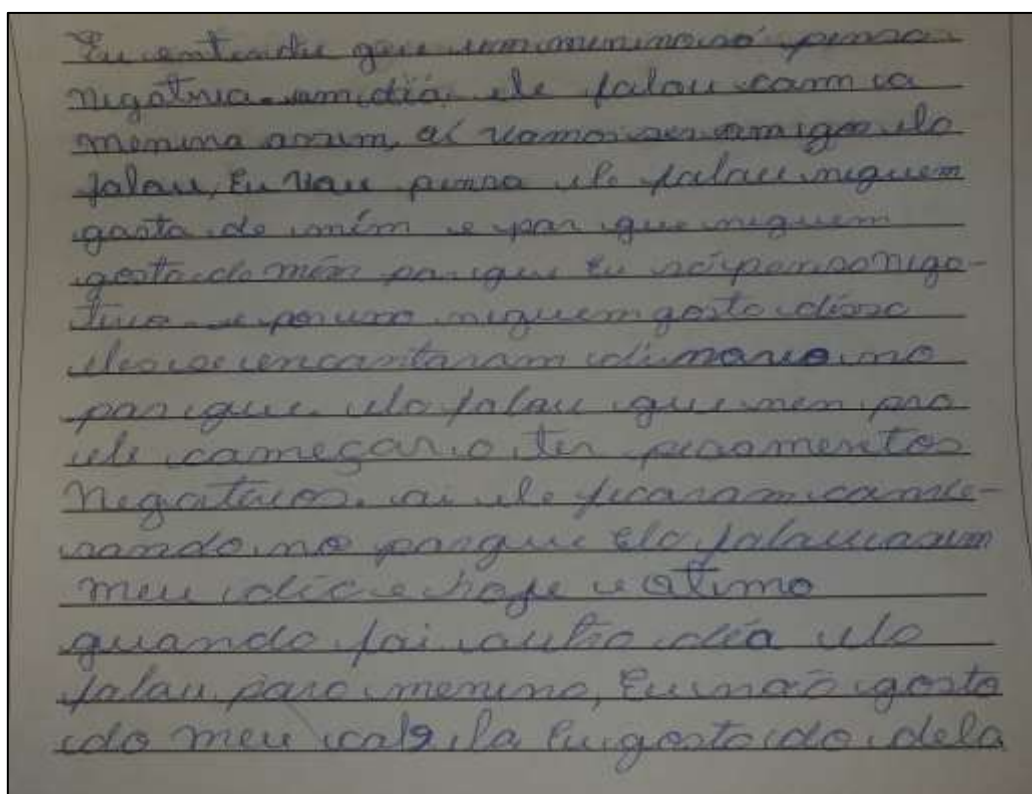 Eu entendu que um menino só pensa
negativa um dia ele falou com a
menina assim, aí vamos ser amigos ela
falou, Eu vou pensa ele falou niguem
gosta de mim e por que niguem
gosta de mim porque Eu só penso nega-
tivo e por isso niguem gosta disso
eles se encontaram di novo no
parque ela falou que nem pra
ele começar a ter pesamentos
Negativos. ai ele ficaram conve-
rsando no parque Ela falou assim
meu dia e hoje e otimo
quando foi outro dia ela
falou para menino, Eu não gosto
do meu cabela Eu gosto do dela